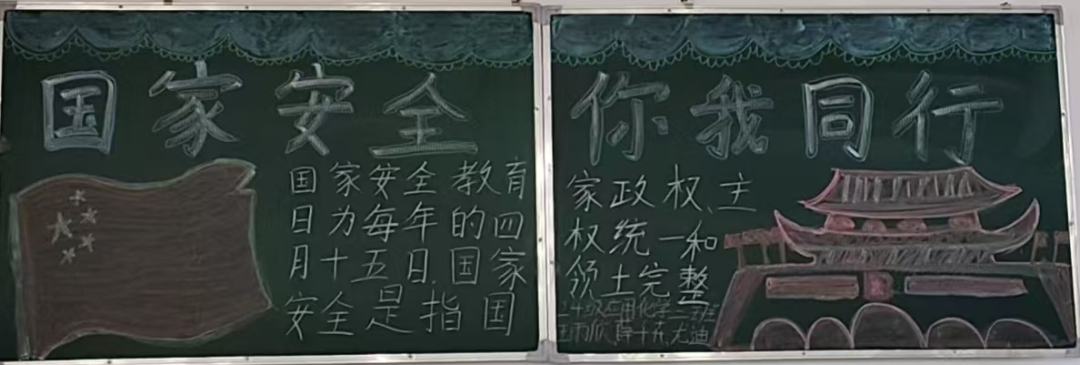 国家安全
国家安全教育
日为每年的四
月十五日,国家
安全是指国
你我同行
家政权、主
权统一和
领土完整
级应用化学二班